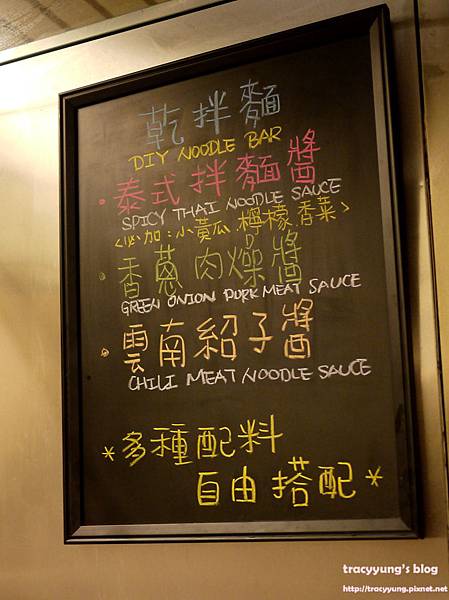 乾拌麵
DIY NOODLE BAR
•泰式拌麵醬
SPICY THAI NOODLE SAUCE
<必加:小黃瓜.檸檬.香菜>
•香蔥肉燥醬
GREEN ONION PORK MEAT SAUCE
•雲南紹子醬
CHILI MEAT NOODLE SAUCE
*多種配料
自由搭配*
tracyyung's blog
http://tracyyung.pixnet.net